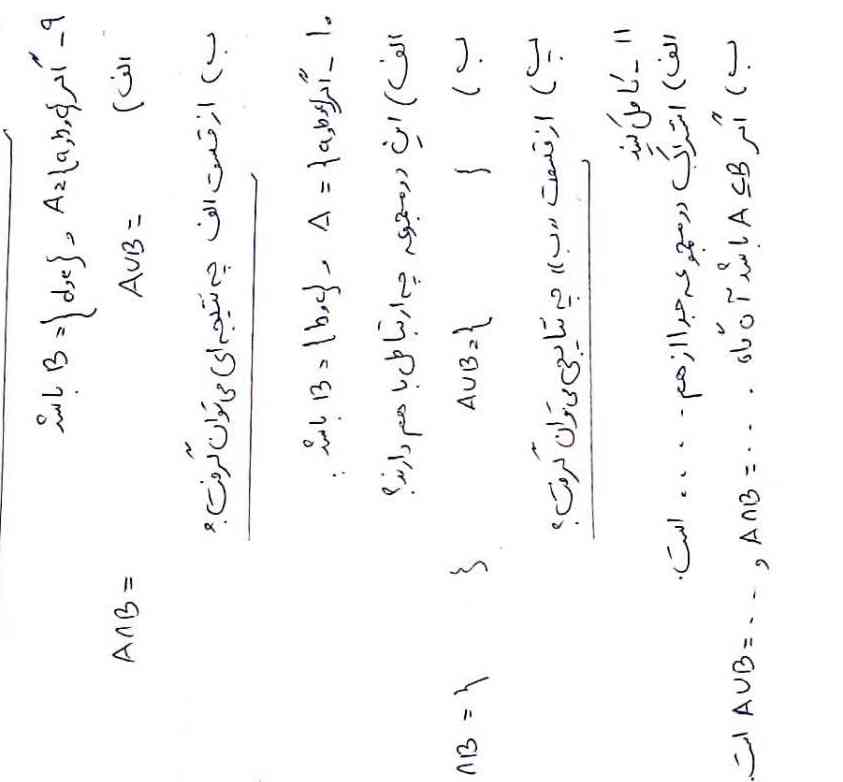 ۹ - اگر A={a,b,c} و B={d,e} باشد
الف) A∪B= A∩B=
ب) از قسمت الف چه نتیجه‌ای می‌توان گرفت؟
۱۰ - اگر A={a,b,c} و B={b,c} باشد:
الف) این دو مجموعه چه ارتباطی با هم دارند؟
ب) A∪B={ } ∩B={ }
پ) از قسمت «ب» چه نتایجی می‌توان گرفت؟
۱۱ - کامل کنید
الف) اشتراک دو مجموعه جدا از هم .... است.
ب) اگر A⊆B باشد آن گاه A∩B=... و A∪B=... است.